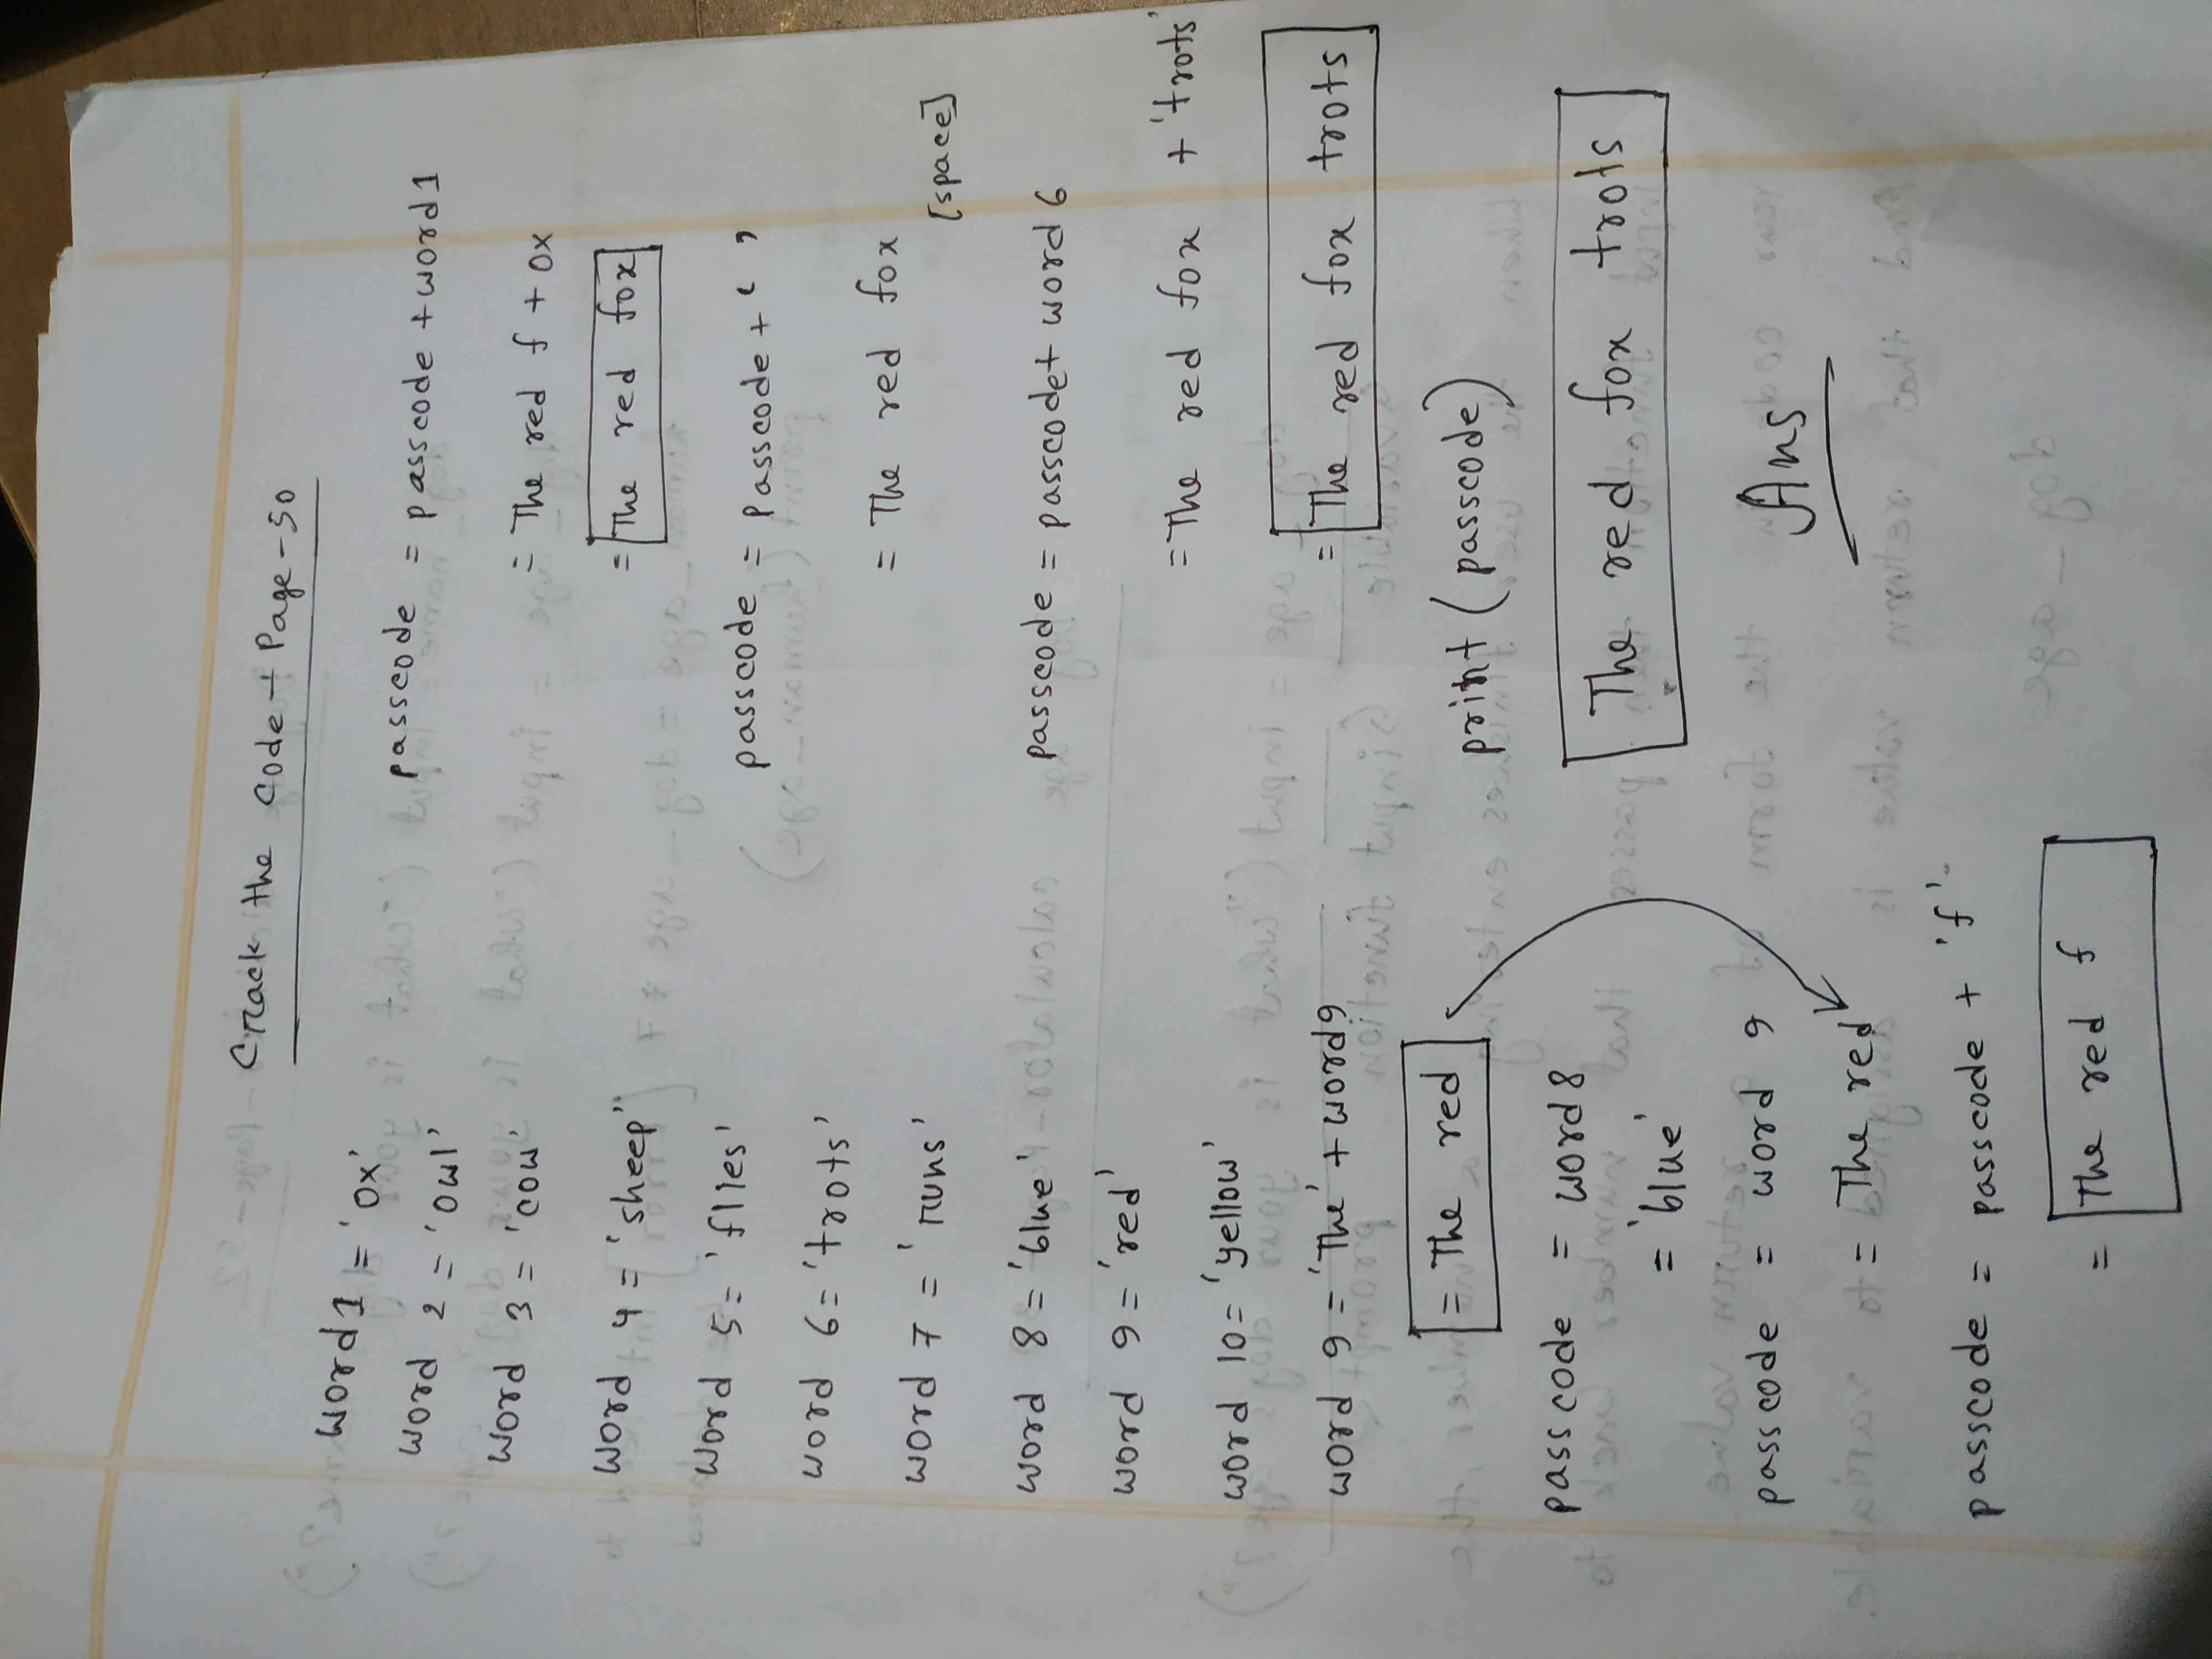 Crack the code + Page-50
word1 = 'ox'
word 2 = 'owl'
word 3 = 'cow'
word 4 = 'sheep"
word 5= 'flies'
word 6= 'trots'
word 7 = 'runs'
word 8 = 'blue'
word 9 = 'red'
word 10= 'yellow'
word 9 = 'The' + word9
= The red
passcode = word8
= 'blue'
passcode = word 9
= The red
passcode = passcode + 'f'
= The red f
passcode = passcode +word1
= The red f + ox
= The red fox
passcode = Passcode + ' '
= The red fox
[space]
passcode = passcode+ word 6
= The red fox + 'trots'
= The red fox trots
print (passcode)
The red fox trots
Ans